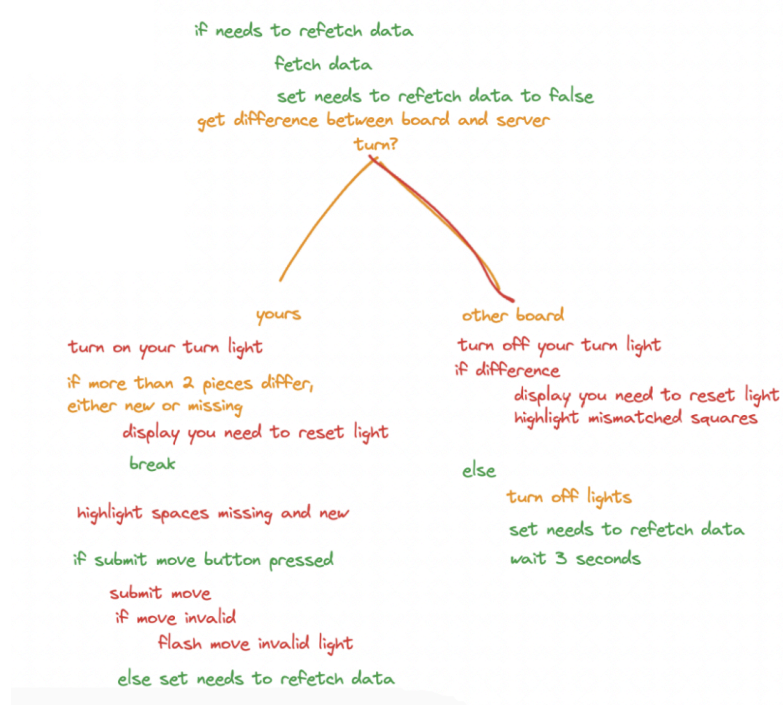 if needs to refetch data
fetch data
set needs to refetch data to false
get difference between board and server
turn?
yours
turn on your turn light
if more than 2 pieces differ,
either new or missing
display you need to reset light
break
highlight spaces missing and new
if submit move button pressed
submit move
if move invalid
flash move invalid light
else set needs to refetch data
other board
turn off your turn light
if difference
display you need to reset light
highlight mismatched squares
else
turn off lights
set needs to refetch data
wait 3 seconds